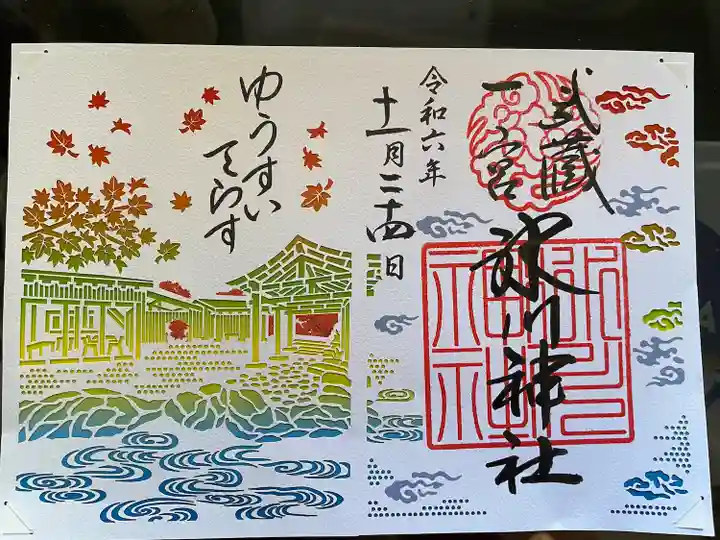 武蔵
一宮
氷川神社
令和六年
十一月二十四日
ゆうすい
てらす
氷川
神社